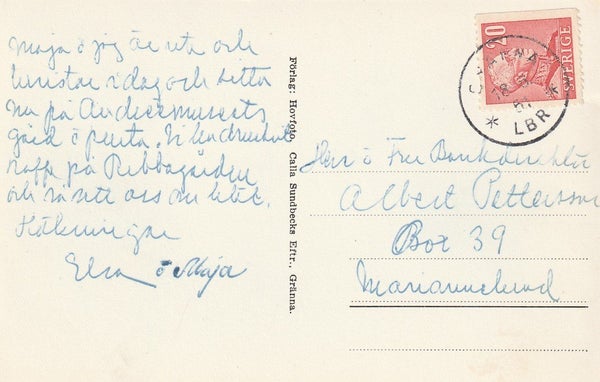 Maja o jag är ute och
turistar idag och sitta
nu på Andréemuseets
gård o pusta. Vi ha druckit
kaffe på Ribbagården
och sett oss om
Hälsningar
Elsa o Maja
Förlag: Hovfoto, Calla Sundbecks Eftr., Gränna.
20
SVERIGE
GRÄNNA
LBR
Herr o Fru Bankdirektör
Albert Pettersson
Box 39
Mariannelund